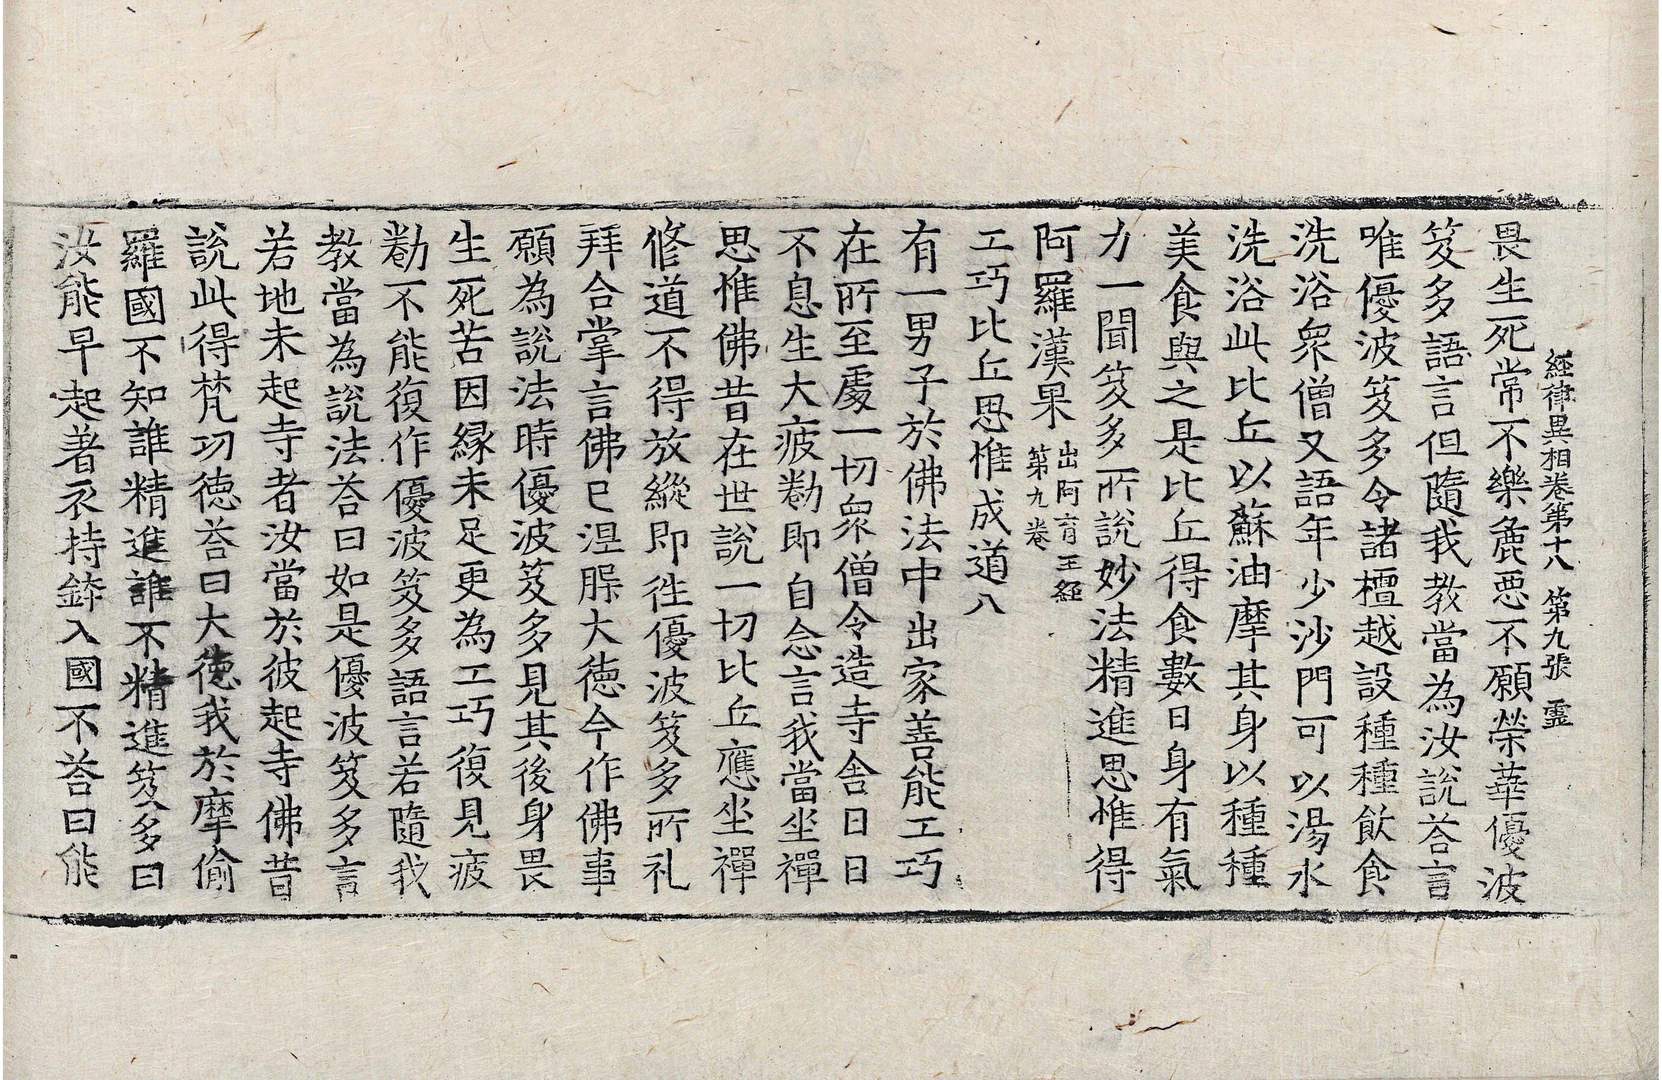 經律異相卷第十八 第九張 靈
畏生死常不樂麁惡不願榮華優波
笈多語言但隨我教當為汝說荅言
唯優波笈多令諸檀越設種種飲食
洗浴衆僧又語年少沙門可以湯水
洗浴此比丘以蘇油摩其身以種種
美食與之是比丘得食數日身有氣
力一聞笈多所說妙法精進思惟得
阿羅漢果出阿育王經
第九卷
工巧比丘思惟成道八
有一男子於佛法中出家善能工巧
在所至處一切衆僧令造寺舍日日
不息生大疲勌即自念言我當坐禪
思惟佛昔在世說一切比丘應坐禪
修道不得放縱即徃優波笈多所礼
拜合掌言佛已涅槃大徳今作佛事
願為說法時優波笈多見其後身畏
生死苦因緣未足更為工巧復見疲
勌不能復作優波笈多語言若隨我
教當為說法荅曰如是優波笈多言
若地未起寺者汝當於彼起寺佛昔
說此得梵功徳荅曰大徳我於摩偷
羅國不知誰精進誰不精進笈多曰
汝能早起著衣持鉢入國不荅曰能